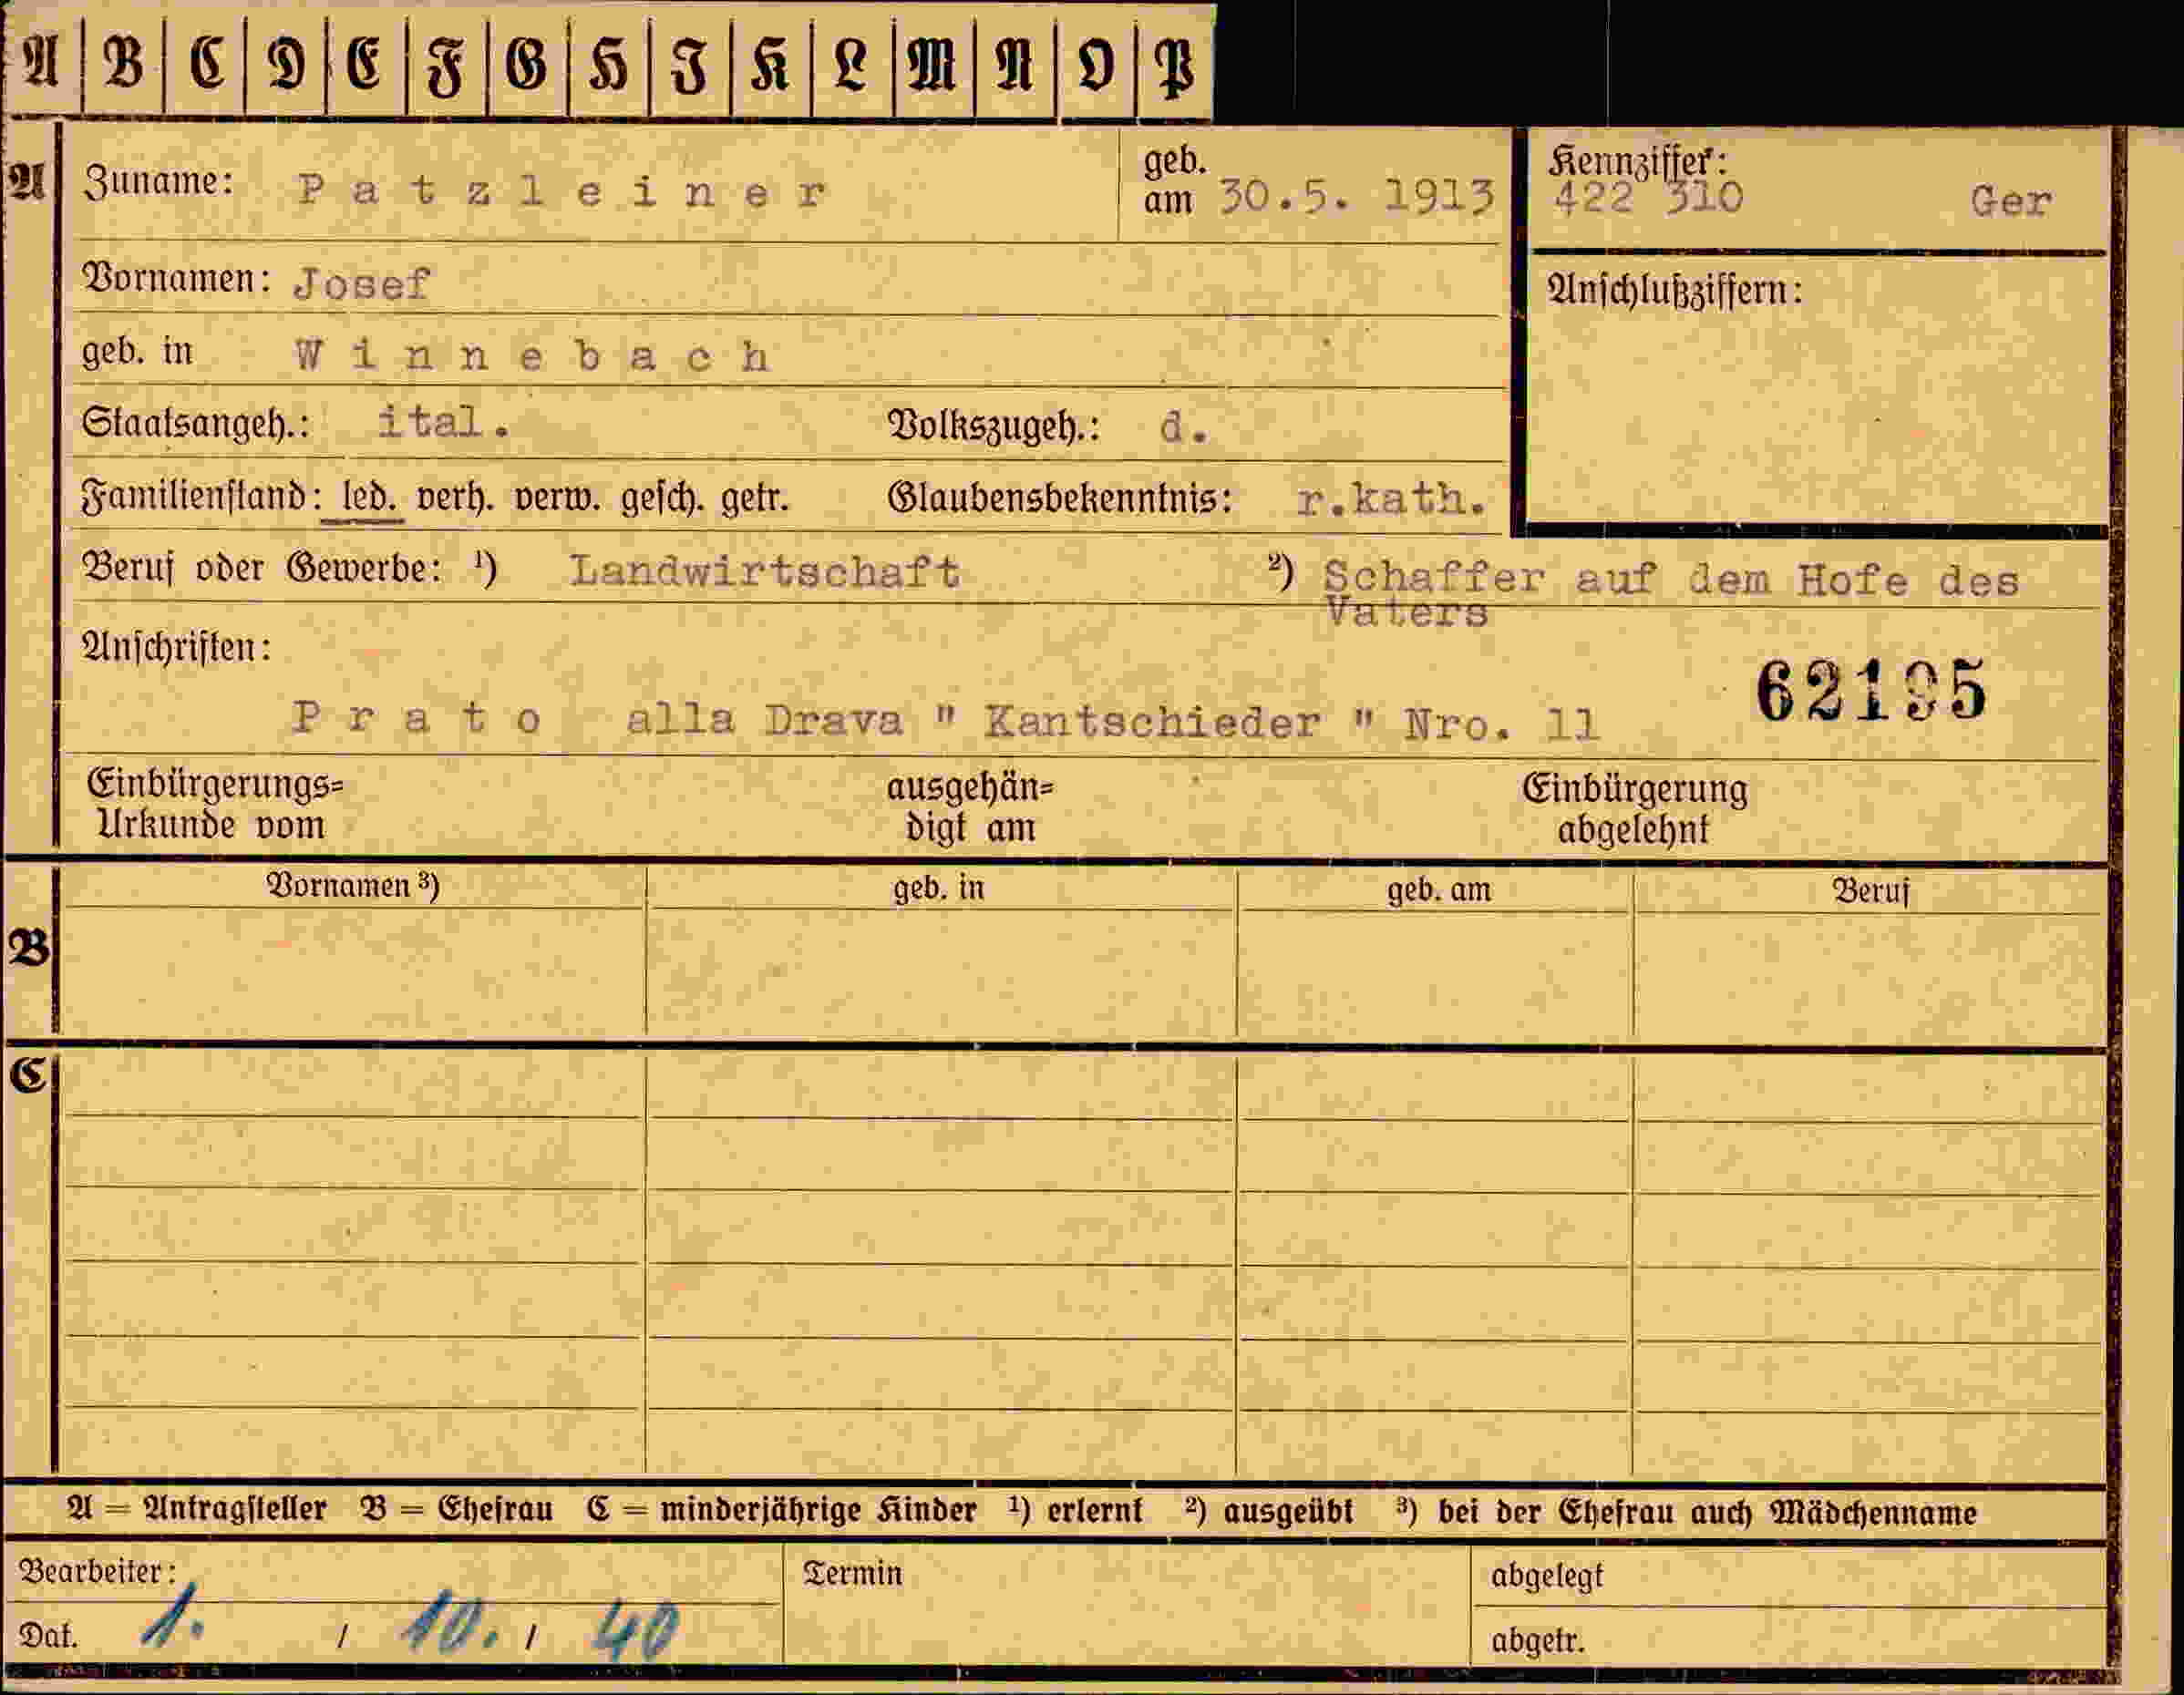 A B C D E F G H I K L M N O P
A Zuname: Patzleiner geb. am 30.5. 1913 Kennziffer: 422 310 Ger
Vornamen: Josef Anschlußziffern:
geb. in Winnebach
Staatsangeh.: ital. Volkszugeh.: d.
Familienstand: led. verh. verw. gesch. getr. Glaubensbekenntnis: r.kath.
Beruf oder Gewerbe: ¹) Landwirtschaft ²) Schaffer auf dem Hofe des
Vaters
Anschriften:
62195
Prato alla Drava " Kantschieder " Nro. 11
Einbürgerungs= ausgehän= Einbürgerung
Urkunde vom digt am abgelehnt
Vornamen ³) geb. in geb. am Beruf
B
C
A = Antragsteller B = Ehefrau C = minderjährige Kinder ¹) erlernt ²) ausgeübt ³) bei der Ehefrau auch Mädchenname
Bearbeiter: Termin abgelegt
Dat. 1. / 10. / 40 abgetr.